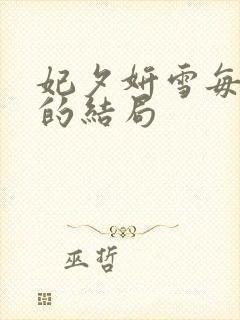 妃夕妍雪每
的結局
巫哲